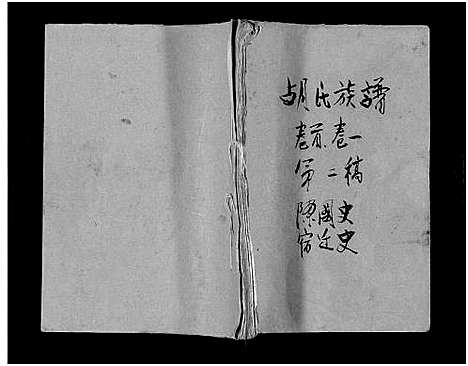 胡氏族譜
卷首 卷一
第二稿
陳國史
宿迁史